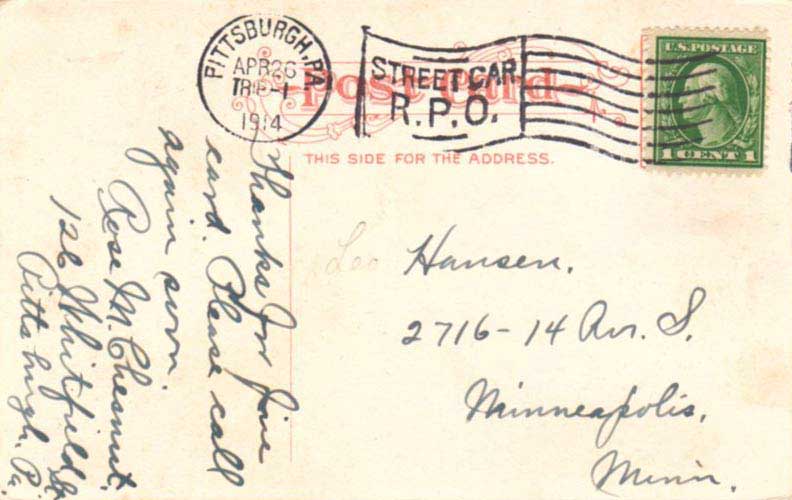 PITTSBURGH, PA
APR 26
1914
STREET CAR
R.P.O.
Post Card
U.S. POSTAGE
1 CENT 1
THIS SIDE FOR THE ADDRESS.
Thanks for fine
card. Please call
again soon.
Rose M. Chesnut.
126 Whitfield St
Pittsburgh. Pa.
Leo Hansen.
2716-14 Av. S.
Minneapolis.
Minn.